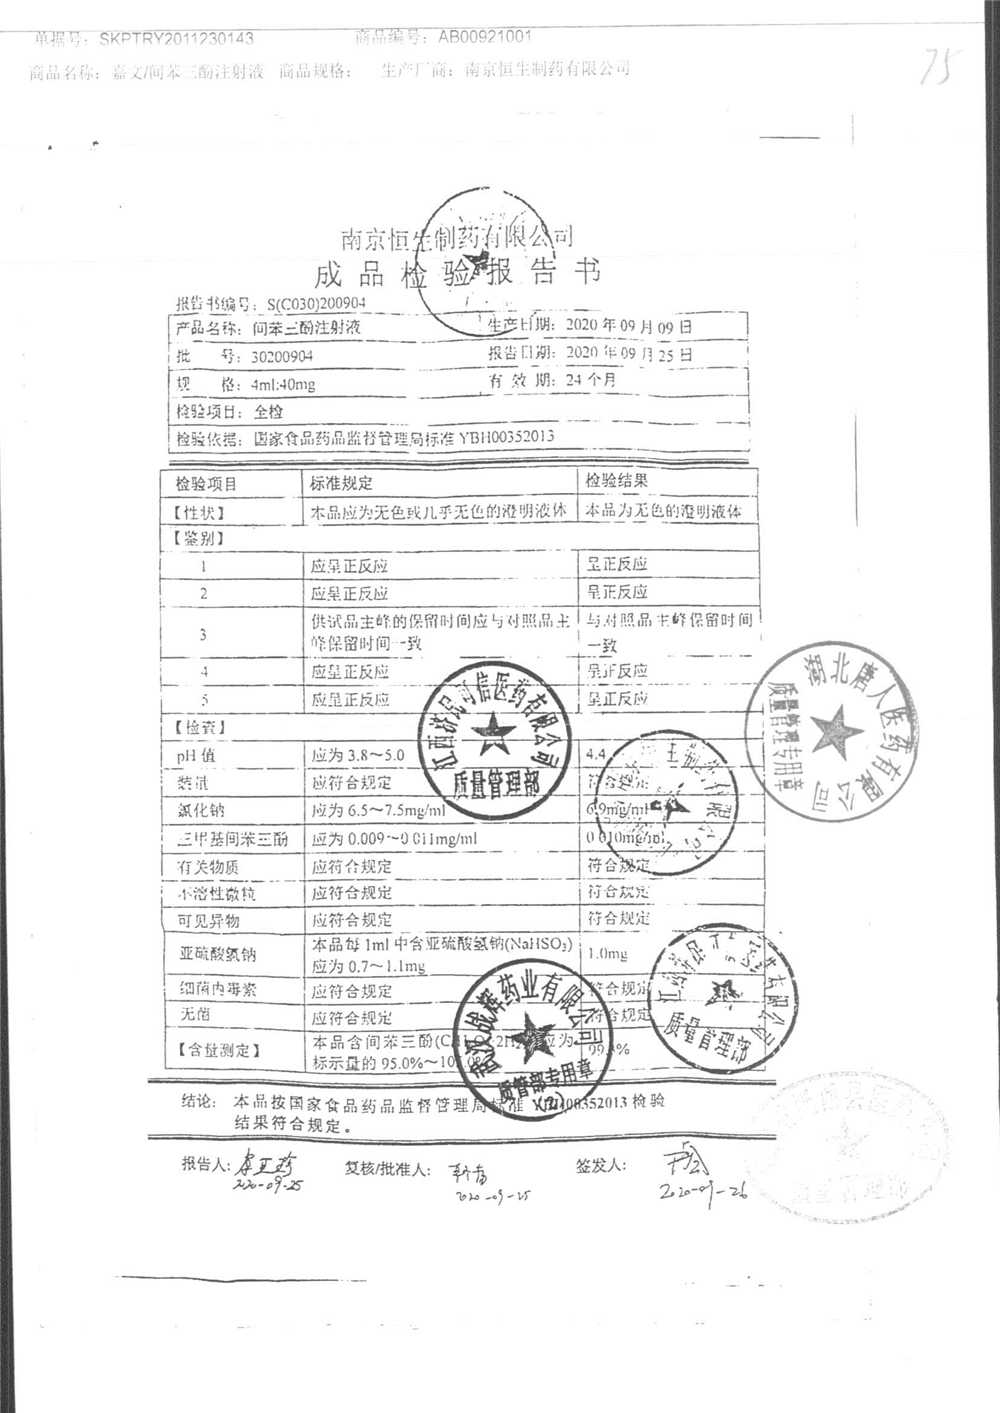 单据号：SKPTRY2011230143 商品编号：AB00921001
商品名称：嘉文/间苯三酚注射液 商品规格： 生产厂商：南京恒生制药有限公司
75
南京恒生制药有限公司
成品检验报告书
报告书编号：S(C030)200904
产品名称：间苯三酚注射液 生产日期：2020年09月09日
批 号：30200904 报告日期：2020年09月25日
规 格：4ml:40mg 有 效 期：24个月
检验项目：全检
检验依据：国家食品药品监督管理局标准YBH00352013
检验项目 标准规定 检验结果
【性状】 本品应为无色或几乎无色的澄明液体 本品为无色的澄明液体
【鉴别】
1 应呈正反应 呈正反应
2 应呈正反应 呈正反应
3 供试品主峰的保留时间应与对照品主峰保留时间一致 与对照品主峰保留时间一致
4 应呈正反应 呈正反应
5 应呈正反应 呈正反应
【检查】
pH值 应为3.8～5.0 4.4
装量 应符合规定 符合规定
氯化钠 应为6.5～7.5mg/ml 6.9mg/ml
三甲基间苯三酚 应为0.009～0.011mg/ml 0.010mg/ml
有关物质 应符合规定 符合规定
不溶性微粒 应符合规定 符合规定
可见异物 应符合规定 符合规定
亚硫酸氢钠 本品每1ml中含亚硫酸氢钠(NaHSO₃)应为0.7～1.1mg 1.0mg
细菌内毒素 应符合规定 符合规定
无菌 应符合规定 符合规定
【含量测定】 本品含间苯三酚 应为标示量的95.0%～
结论：本品按国家食品药品监督管理局标准YBH00352013检验
结果符合规定。
报告人： 复核/批准人： 签发人：
2020-09-25 2020-09-25 2020-09-26
江西济民可信医药有限公司
质量管理部
湖北唐人医药有限公司
质量管理专用章
武汉战辉药业有限公司
质管部专用章
(2)
质量管理部